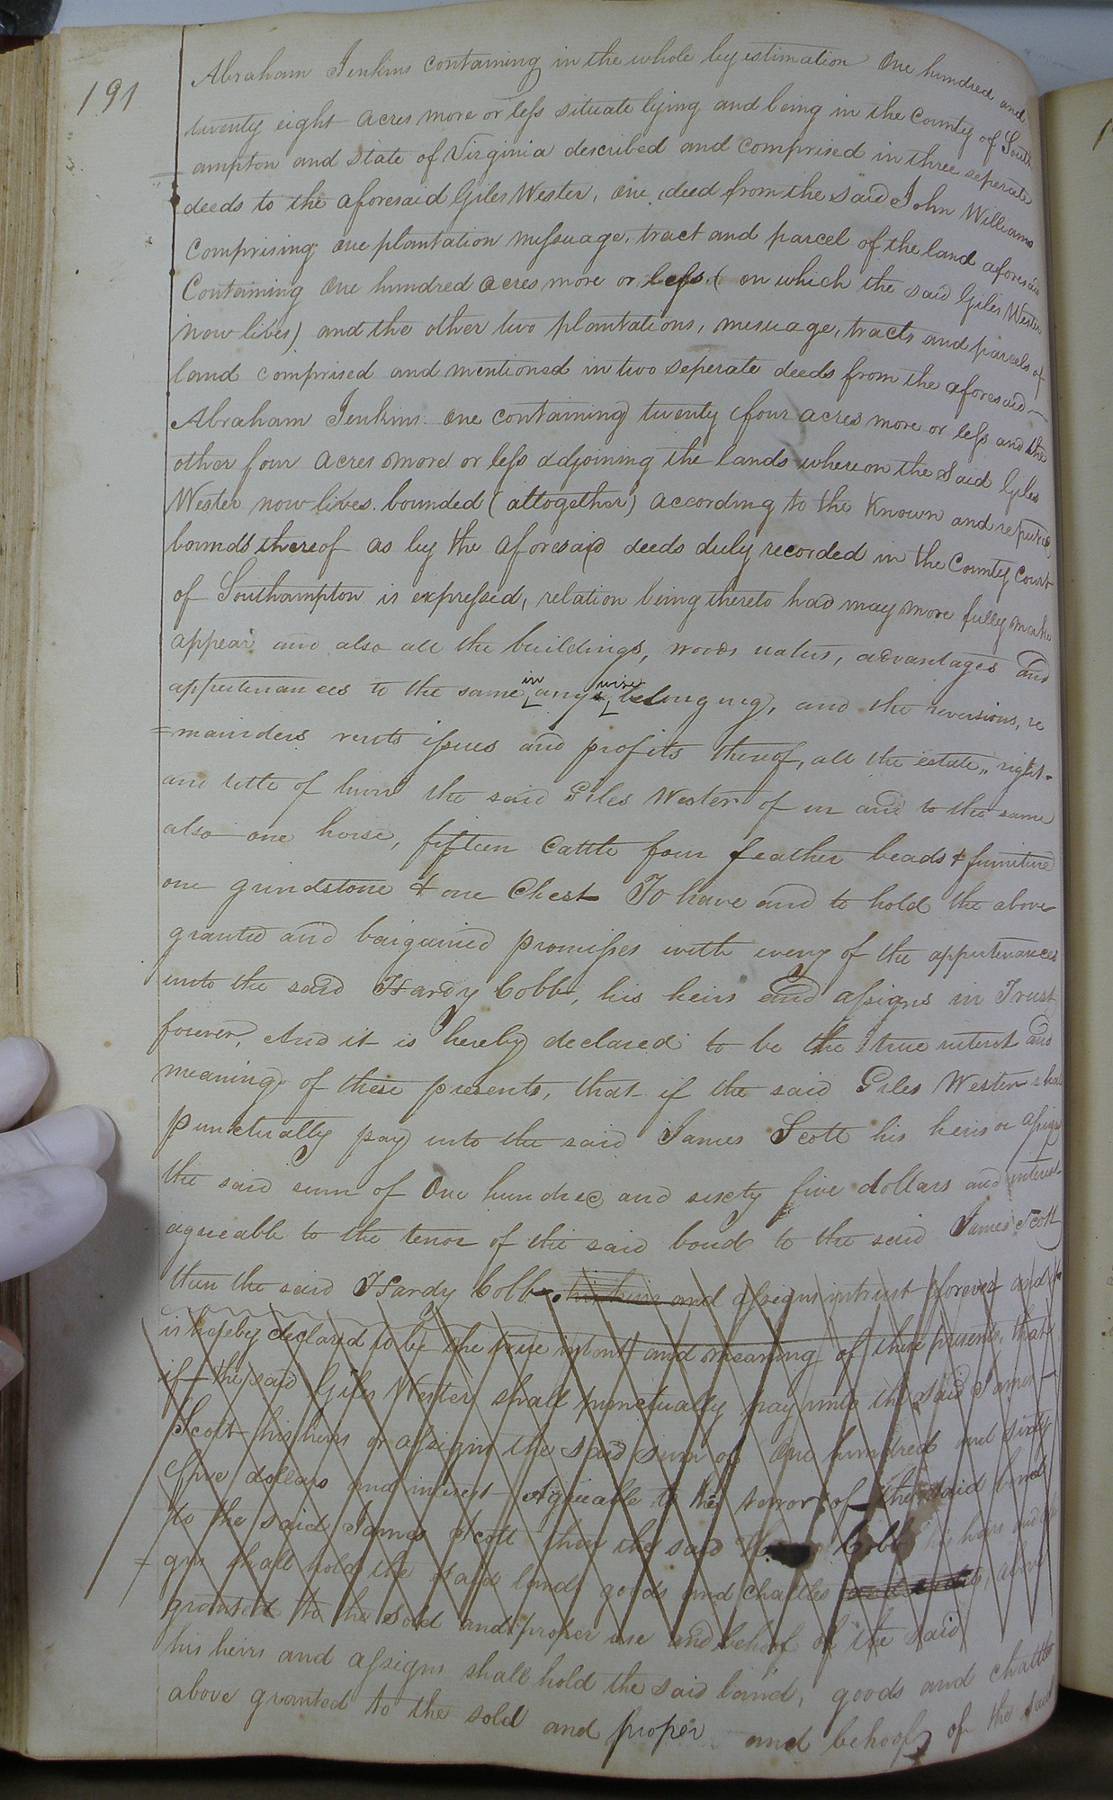 191
Abraham Jenkins containing in the whole by estimation One hundred and
twenty eight acres more or less situate lying and being in the County of South
=ampton and state of Virginia described and comprised in three seperate
deeds to the aforesaid Giles Wester, One deed from the said John Williams
Comprising one plantation messuage, tract and parcel of the land aforesaid
Containing One hundred acres more or less. (on which the said Giles Wester
now lives) and the other two plantations, mesuage, tracts and parcels of
land comprised and mentioned in two seperate deeds from the aforesaid
Abraham Jenkins. One containing twenty four acres more or less and the
other four acres more or less adjoining the lands whereon the said Giles
Wester now lives. bounded (altogether) according to the Known and reputed
bounds thereof as by the aforesaid deeds duly recorded in the County Court
of Southampton is expressed, relation being thereto had may more fully make
appear and also all the buildings, woods waters, advantages and
appurtenances to the same in any wise belonging, and the reversions, re
=mainders rents issues and profits thereof, all the estate, right
and title of him the said Giles Wester of in and to the same
also one horse, fifteen Cattle four feather beads & furniture
one grindstone & one Chest To have and to hold the above
granted and bargained promisses with every of the appurtenances
unto the said Hardy Cobb, his heirs and assigns in Trust
forever, And it is hereby declared to be the true intent and
meaning of these presents, that if the said Giles Wester shall
punctually pay unto the said James Scott his heirs or assigns
the said sum of One hundred and sixty five dollars and interest
agreeable to the tenor of the said bond to the said James Scott
then the said Hardy Cobb his heirs and assigns intrust forever and it
is hereby declared to be the true intent and meaning of these presents, that
if the said Giles Wester shall punctually pay unto the said James
Scott his heirs or assigns the said sum of One hundred and sixty
five dollars and interest Agreeable to the tenror of the said bond
to the said James Scott then the said Cobb his heirs and
=gns shall hold the said land, goods and chattles above
granted to the sold and proper use and behoof of the said
his heirs and assigns shall hold the said land, goods and chattles
above granted to the sold and proper and behoof of the said